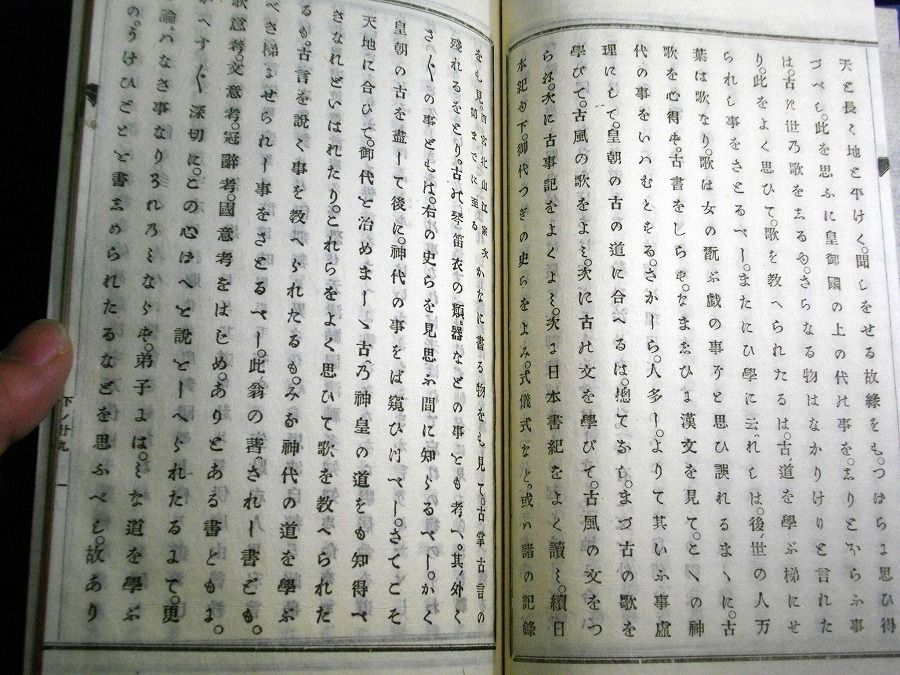 天と長く地と平けく。聞しをせる故緣をも。つばらよ思ひ得
づべし。此を思ふに皇御國の上の代の事を。しりとほらふ事
は。古き世乃歌をしるも。さらなる物はなかりけりと言れた
り。此をよく思ひて。歌を教へられたるは。古道を學ぶ梯にせ
られし事をさとるべし。またにひ學に云れしは。後世の人万
葉は歌なり。歌は女の翫ぶ戲の事ぞと思ひ誤れるまゝに。古
歌を心得ず。古書をしらず。なまじひに漢文を見て。こゝの神
代の事をいはむとする。さかしら人多し。よりて其いふ事虛
理にして。皇朝の古の道に合へるは。惣てなし。まづ古の歌を
學びて。古風の歌をよみ。次に古の文を學びて。古風の文をつ
らね。次に古事記をよくよみ。次に日本書紀をよく讀み。續日
本紀ゆ下。御代つぎの史らをよみ。式儀式など。或は諸の記錄
をも見。西宮北山江家次
第までに至るかなに書る物をも見て。古掌古言の
殘れるをとり。古の琴笛衣の類。器などの事とも考へ。其外く
さ〴〵の事どもは。右の史らを見思ふ間に知らるべし。かく
皇朝の古を盡して後に。神代の事をば窺ひつべし。さてこそ
天地に合ひて。御代を治めましゝ古乃神皇の道をも知得べ
きなれどいはれたり。これらをよく思ひて歌を教へられた
るも。古言を說く事を教へられたるも。みな神代の道を學ぶ
べき梯にせられし事をさとるべし。此翁の著されし書ども。
歌意考。文意考。冠辭考。國意考をはじめ。ありとある書ともに。
かへす〴〵深切に。この心ばへと說としへられたるにて。更
論はなき事なり。それのみならず。弟子には。みな道を學ぶ
の。うけひごとを書しめられたるなどを思ふべし。故あり
下ノ廿九